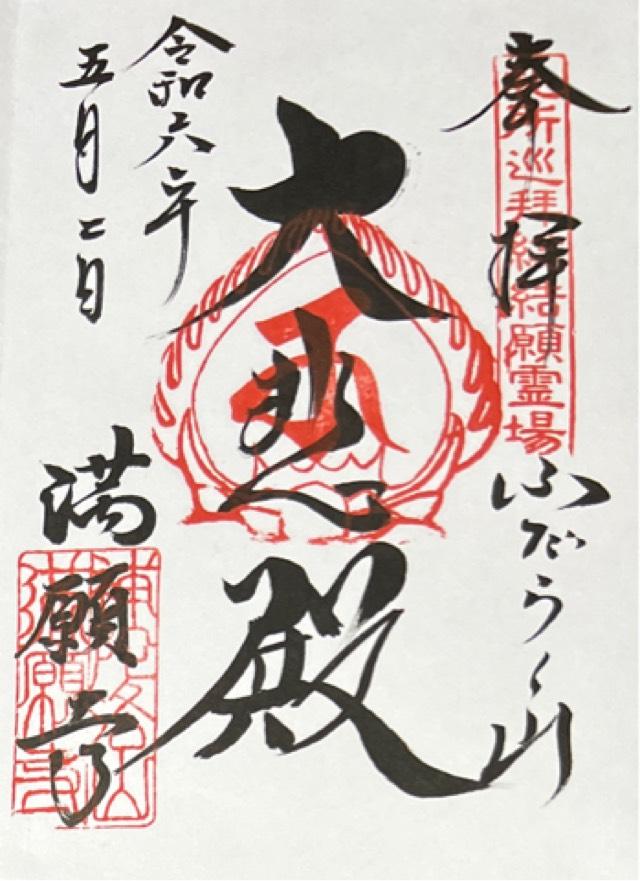 奉拝
所巡拝総結願霊場
ふだらく山
大悲殿
令和六年
五月二日
満願寺